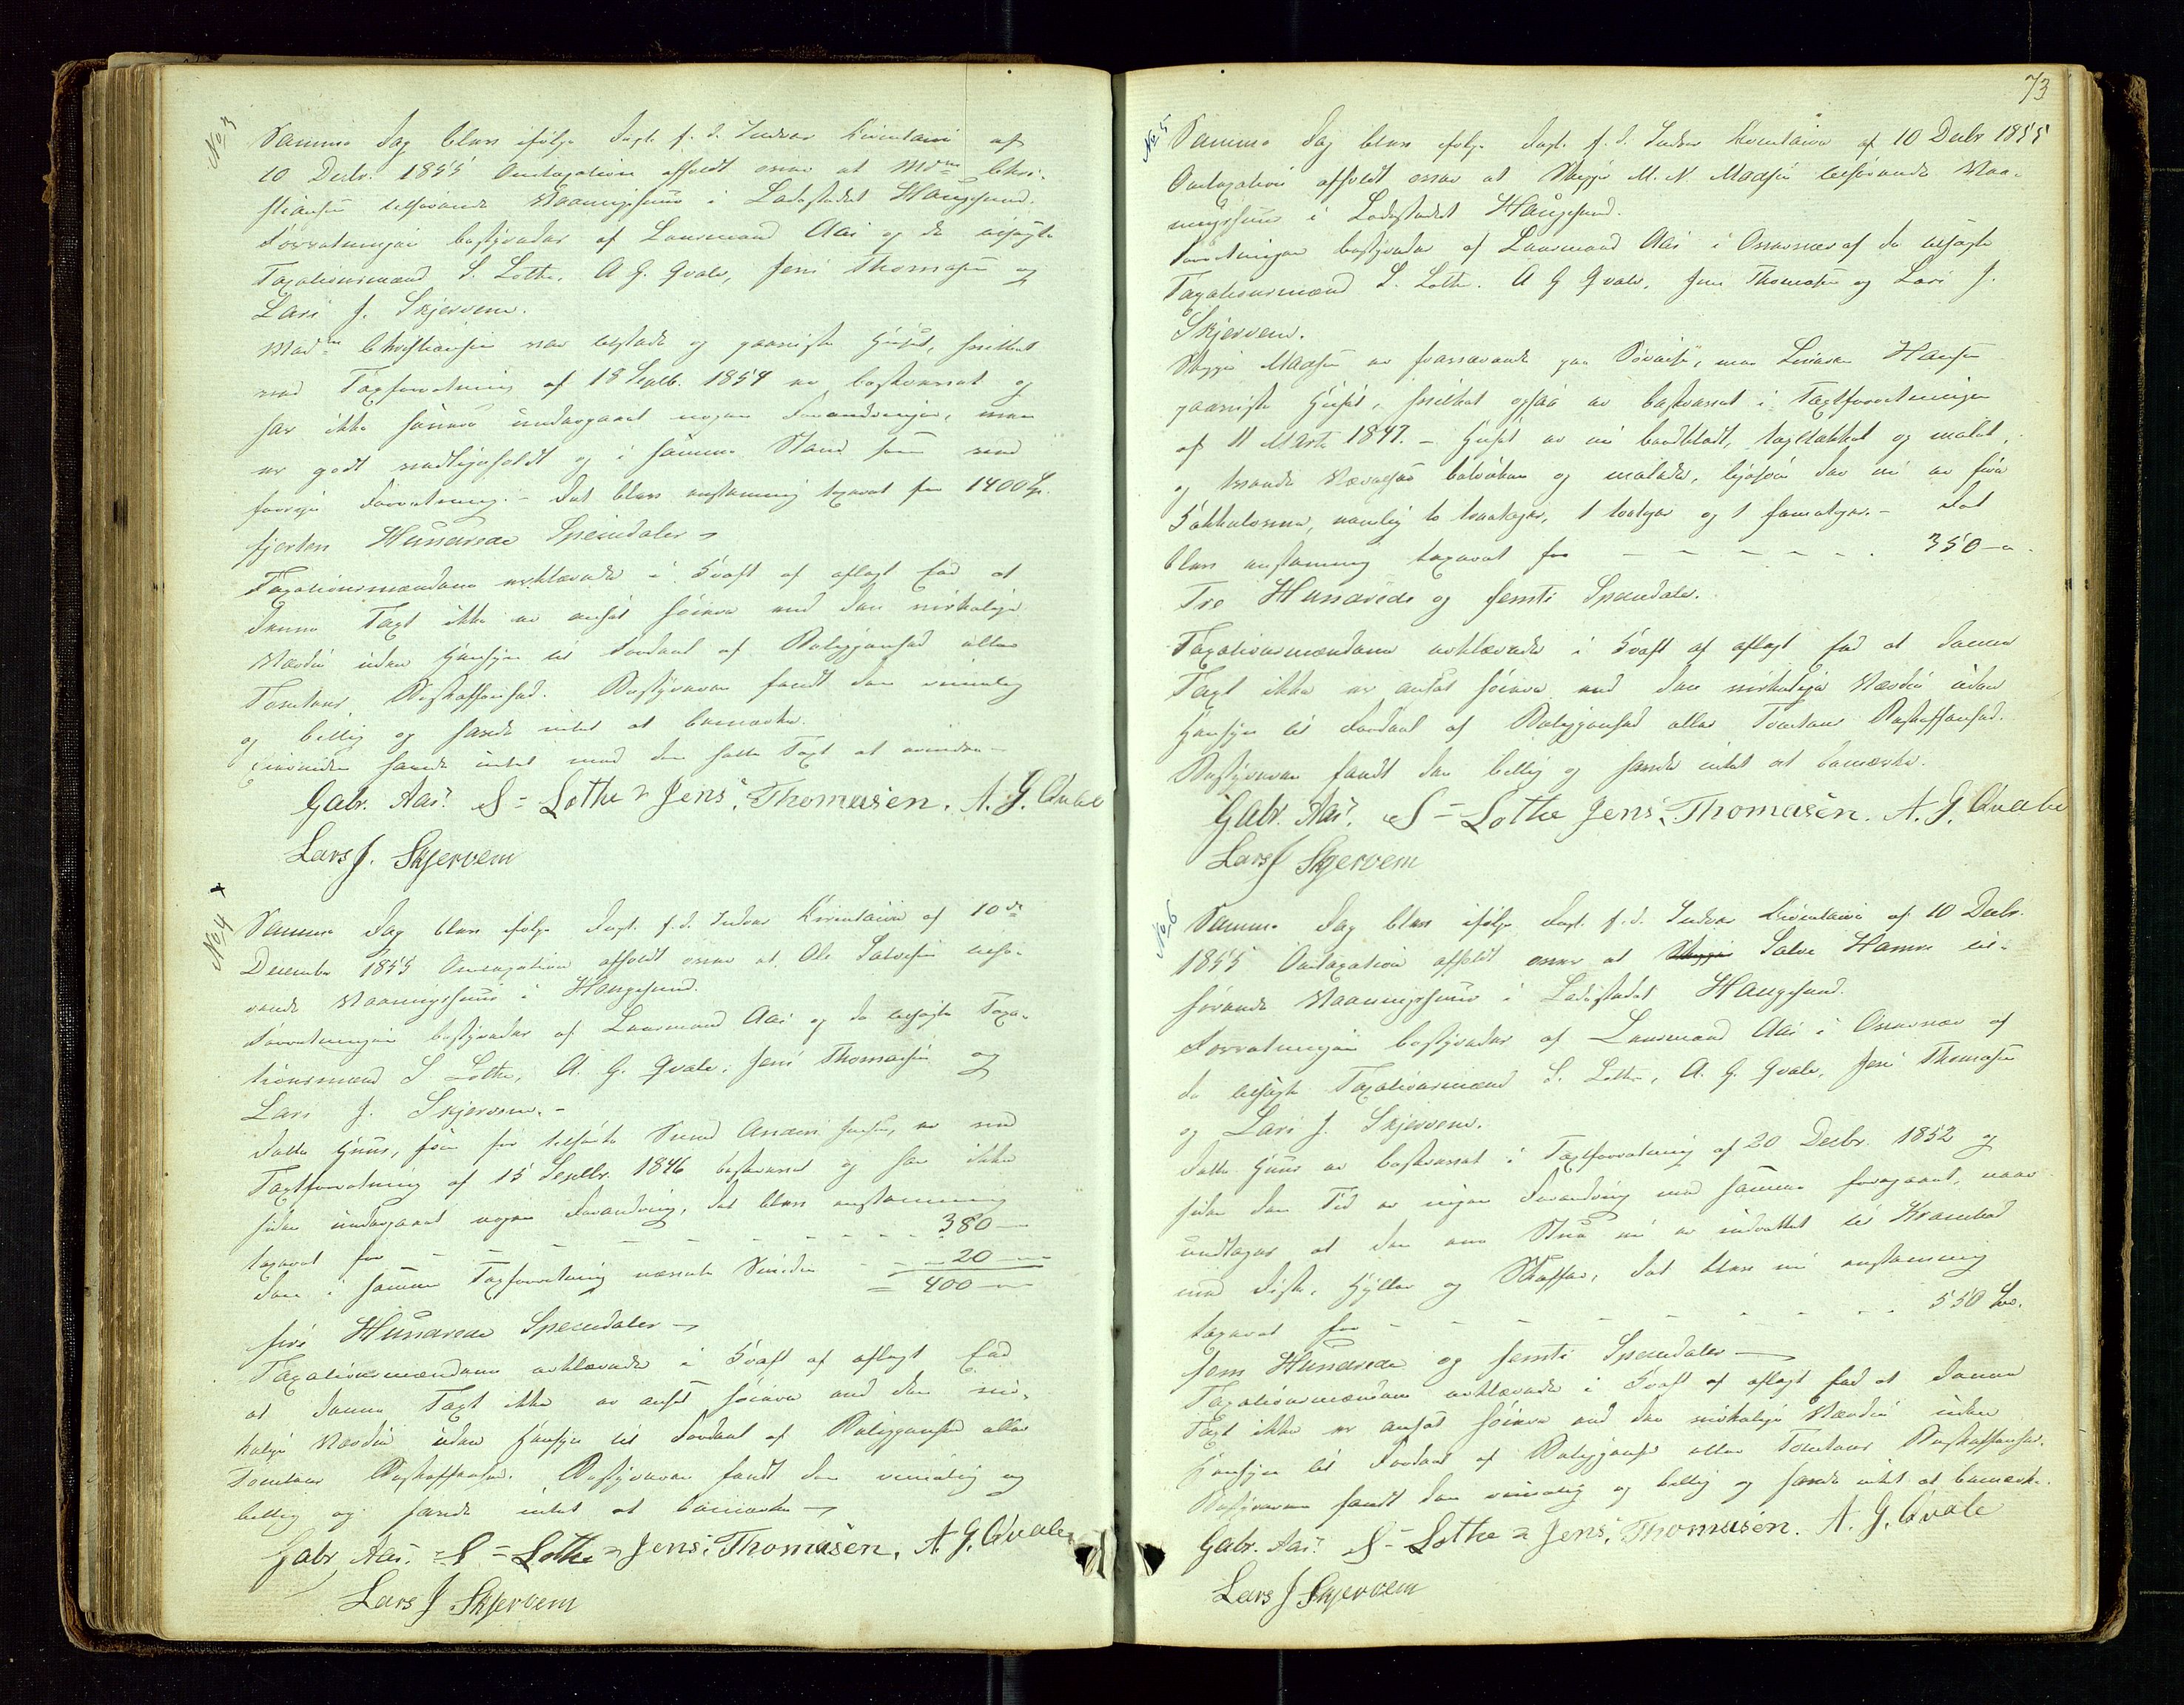 No 3
Samme Dag blev ifølge Dagl. s. d. under Inventarie af
10 Decbr. 1855 Omtaxation afholdt over et Mdm Chri-
stiansen tilhørende Vaaningshuus i Ladestedet Haugesund.
Forretningen bestyredes af Lensmand Aas og de udsagte
Taxationsmænd S. Lothe, A G. Qvale, Jens Thomasen og
Lars J. Skjervem.
Madm Christiansen var tilstede og paaviste Huset, hvilket
ved Taxforretning af 18 Septb. 1854 er beskrevet og
har ikke senere undergaaet nogen Forandringer, men
er godt vedligeholdt og i samme Stand som ved
forrige Forretning. - Det blev enstemmig taxeret for 1400 Sp.
fjorten Hundrede Speciedaler
Taxationsmændene erklærede i Kraft af aflagt Eed at
denne Taxt ikke er ansat høiere end den virkelige
Værdie uden Hensyn til Fordeel af Beliggenhed eller
Tomtens Beskaffenhed. Bestyreren fandt den rimelig
og billig og havde intet at bemærke.
havde intet mod den satte Taxt at erindre
Gabr. Aas. S= Lothe Jens. Thomasen. A. G. Qvale
Lars J. Skjervem
No 4
Samme Dag blev ifølge Dagl. s. d. under af 10de
December 1855 Omtaxation afholdt over et Ole Salvesen tilhø-
rende Vaaningshuus i Haugesund.
Forretningen bestyredes af Lensmand Aas og de udsagte Taxa-
tionsmænd S Lothe, A. G. Qvale, Jens Thomasen og
Lars J. Skjervem. -
Dette Huus, som før tilhørte Svend Anders Jensen, er ved
Taxtforretning af 15 Septbr. 1846 beskrevet og har ikke
siden undergaaet nogen Forandring, det blev enstemmig
taxeret for - - - 380 —
den i samme Taxforretning nævnte - - 20 —
= 400 —
fire Hundrede Speciedaler
Taxationsmændene erklærede i Kraft af aflagt Eed
at denne Taxt ikke er ansat høiere end den vir-
kelige Værdie uden Hensyn til Fordeel af Beliggenhed eller
Tomtens Beskaffenhed. Bestyreren fandt den rimelig og
billig og havde intet at bemærke
Gabr. Aas. S= Lothe Jens. Thomasen. A. G. Qvale
Lars J Skjervem
73
No 5
Samme Dag blev ifølge Dagl. s. d. under af 10 Decbr 1855
Omtaxation afholdt over et Skipper M. N. Madsen tilhørende Vaa-
ningshuus i Ladestedet Haugesund.
Forretningen bestyredes af Lensmand Aas i Overvær af de udsagte
Taxationsmænd S. Lothe. A G Qvale, Jens Thomasen og Lars J.
Skjervem.
Skipper Madsen er fraværende paa Søreise, men Hansen
paaviste Huset, hvilket ogsaa er beskrevet i Taxtforretningen
af 11 Marts 1847. - Huset er nu bordklædt, tagtækket og malet,
og tvende Værelser og malede, ligesom der nu er fire
Kakkelovne, nemlig to toetages, 1 toetages og 1 - Det
blev enstemmig taxeret for - - - 350 —
Tre Hundrede og femti Speciedaler.
Taxationsmændene erklærede i Kraft af aflagt Eed at denne
Taxt ikke er ansat høiere end den virkelige Værdie uden
Hensyn til Fordeel af Beliggenhed eller Tomtens Beskaffenhed.
Bestyreren fandt den billig og havde intet at bemærke.
Gabr. Aas. S= Lothe Jens. Thomasen. A. G. Qvale
Lars J Skjervem
No 6
Samme Dag blev ifølge Dagl. s. d. under af 10 Decbr.
1855 Omtaxation afholdt over et Salve Hamre til-
hørende Vaaningshuus i Ladestedet Haugesund.
Forretningen bestyredes af Lensmand Aas i Overvær af
de udsagte Taxationsmænd S. Lothe, A. G. Qvale, Jens Thomasen
og Lars J. Skjervem.
Dette Huus er beskrevet i Taxtforretning af 20 Decbr. 1852 og
siden den Tid er ingen Forandring med samme foregaaet, naar
undtages at den ene Stue nu er indrettet til Krambod
med Disk, Hylder og Skuffer, det blev nu enstemmig
taxeret for - - - 550 Spd.
fem Hundrede og femti Speciedaler
Taxationsmændene erklærede i Kraft af aflagt Eed at denne
Taxt ikke er ansat høiere end den virkelige Værdie uden
Hensyn til Fordeel af Beliggenhed eller Tomtens Beskaffenhed.
Bestyreren fandt den rimelig og billig og havde intet at bemærke.
Gabr. Aas. S= Lothe Jens. Thomasen. A. G. Qvale
Lars J Skjervem